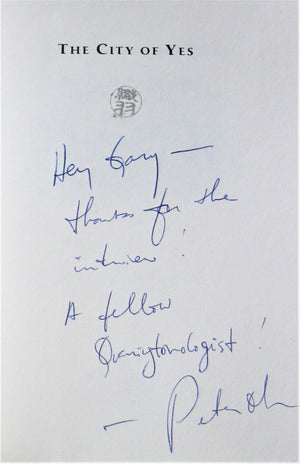 THE CITY OF YES
Hey Gary —
thanks for the
interview!
A fellow
Quaringtonologist!
— Peter